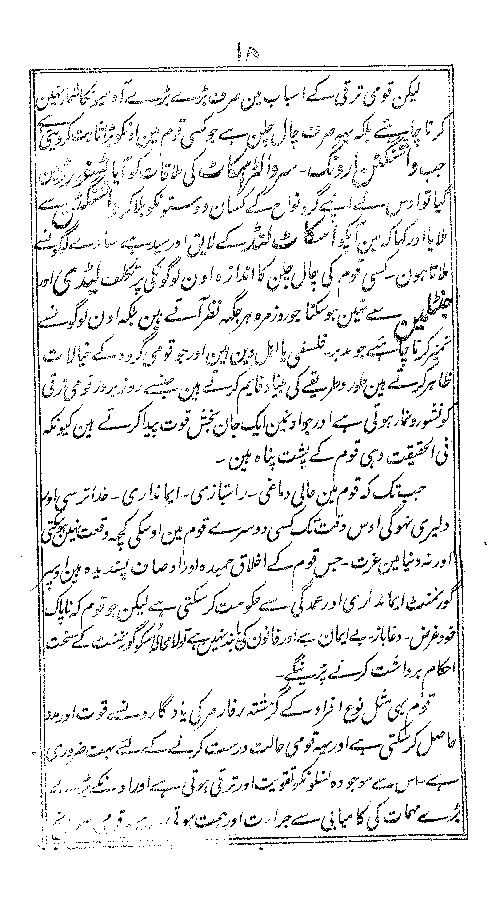 ۱۵
لیکن قومی ترقی کے اسباب مین صرف بڑے بڑے آدمیونکا شمار نہین
کرنا چاہئے بلکہ یہہ صرف چال چلن ہے جو کسی قوم مین اونکو بڑا ثابت کرو
جب واشنگٹن ارونگ - سر والٹر سکاٹ کی ملاقات کو آیا
گیا تو اوس نے اپنے گرد نواح کے کسان دوستونکو بلا کر واشنگٹن سے
ملایا اور کہا کہ مین آپکو اسکاٹ لنڈ کے لایق اور سیدہے سادے لوگونسے
ملاتا ہون - کسی قوم کی چال چلن کا اندازہ اون لوگونکی پر تکلف لیڈی اور
جنٹلمین سے نہین ہو سکتا جو روز مرہ ہر جگہہ نظر آتے ہین بلکہ اون لوگونسے
تمیز کرنا چاہئے جو مدبر - فلسفی یا اہل دین ہین اور جو قومی گروہ کے خیالات
ظاہر کرتے ہین اور طریقے کی بنیاد قایم کرتے ہین - جنسے روز بروز قومی ترقی
کو نشو و نما ہوتی ہے اور جو اونمین ایک جان بخش قوت پیدا کرتے ہین کیونکہ
فی الحقیقت وہی قوم کے پشت پناہ ہین -
جب تک کہ قوم مین عالی دماغی - راستبازی - ایمانداری - خدا ترسی اور
دلیری نہوگی اوس وقت تک کسی دوسرے قوم مین اوسکی کچہہ وقعت نہین ہو سکتی
اور نہ دنیا مین عزت - جس قوم کے اخلاق حمیدہ اور اوصاف پسندیدہ ہین اوسپر
گورنمنٹ ایمانداری اور عمدگی سے حکومت کر سکتی ہے لیکن جو قوم کہ ناپاک
خود غرض - دغاباز - بے ایمان ہے اور قانون کی پابند نہین ہے تو لا محالا اسکو گورنمنٹ کے سخت
احکام برداشت کرنے پڑینگے -
قوم بہی مثل نوع افراد کے گزشتہ رفارمر کی یادگار ونسے قوت اور مدد
حاصل کر سکتی ہے اور یہہ قومی حالت درست کرنے کے لئے بہت ضروری
ہے اس سے موجودہ نسلونکو تقویت اور ترقی ہوتی ہے اور اونکے بڑے
بڑے مہمات کی کامیابی سے جرارت اور ہمت ہوتی ہے - قوم